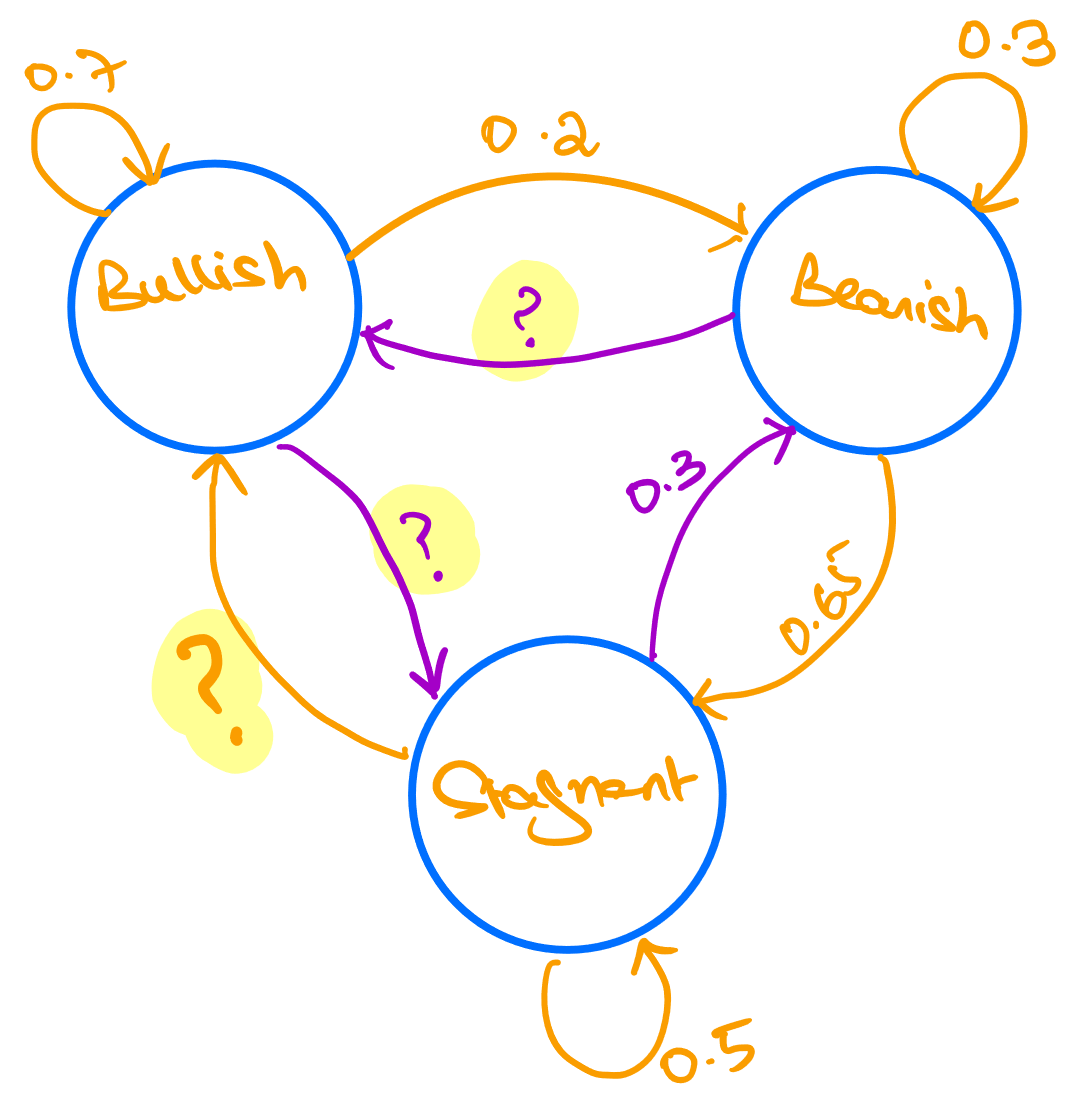 0.7
0.3
0.2
Bullish
Bearish
?
0.3
?
0.65
?
Stagnent
0.5